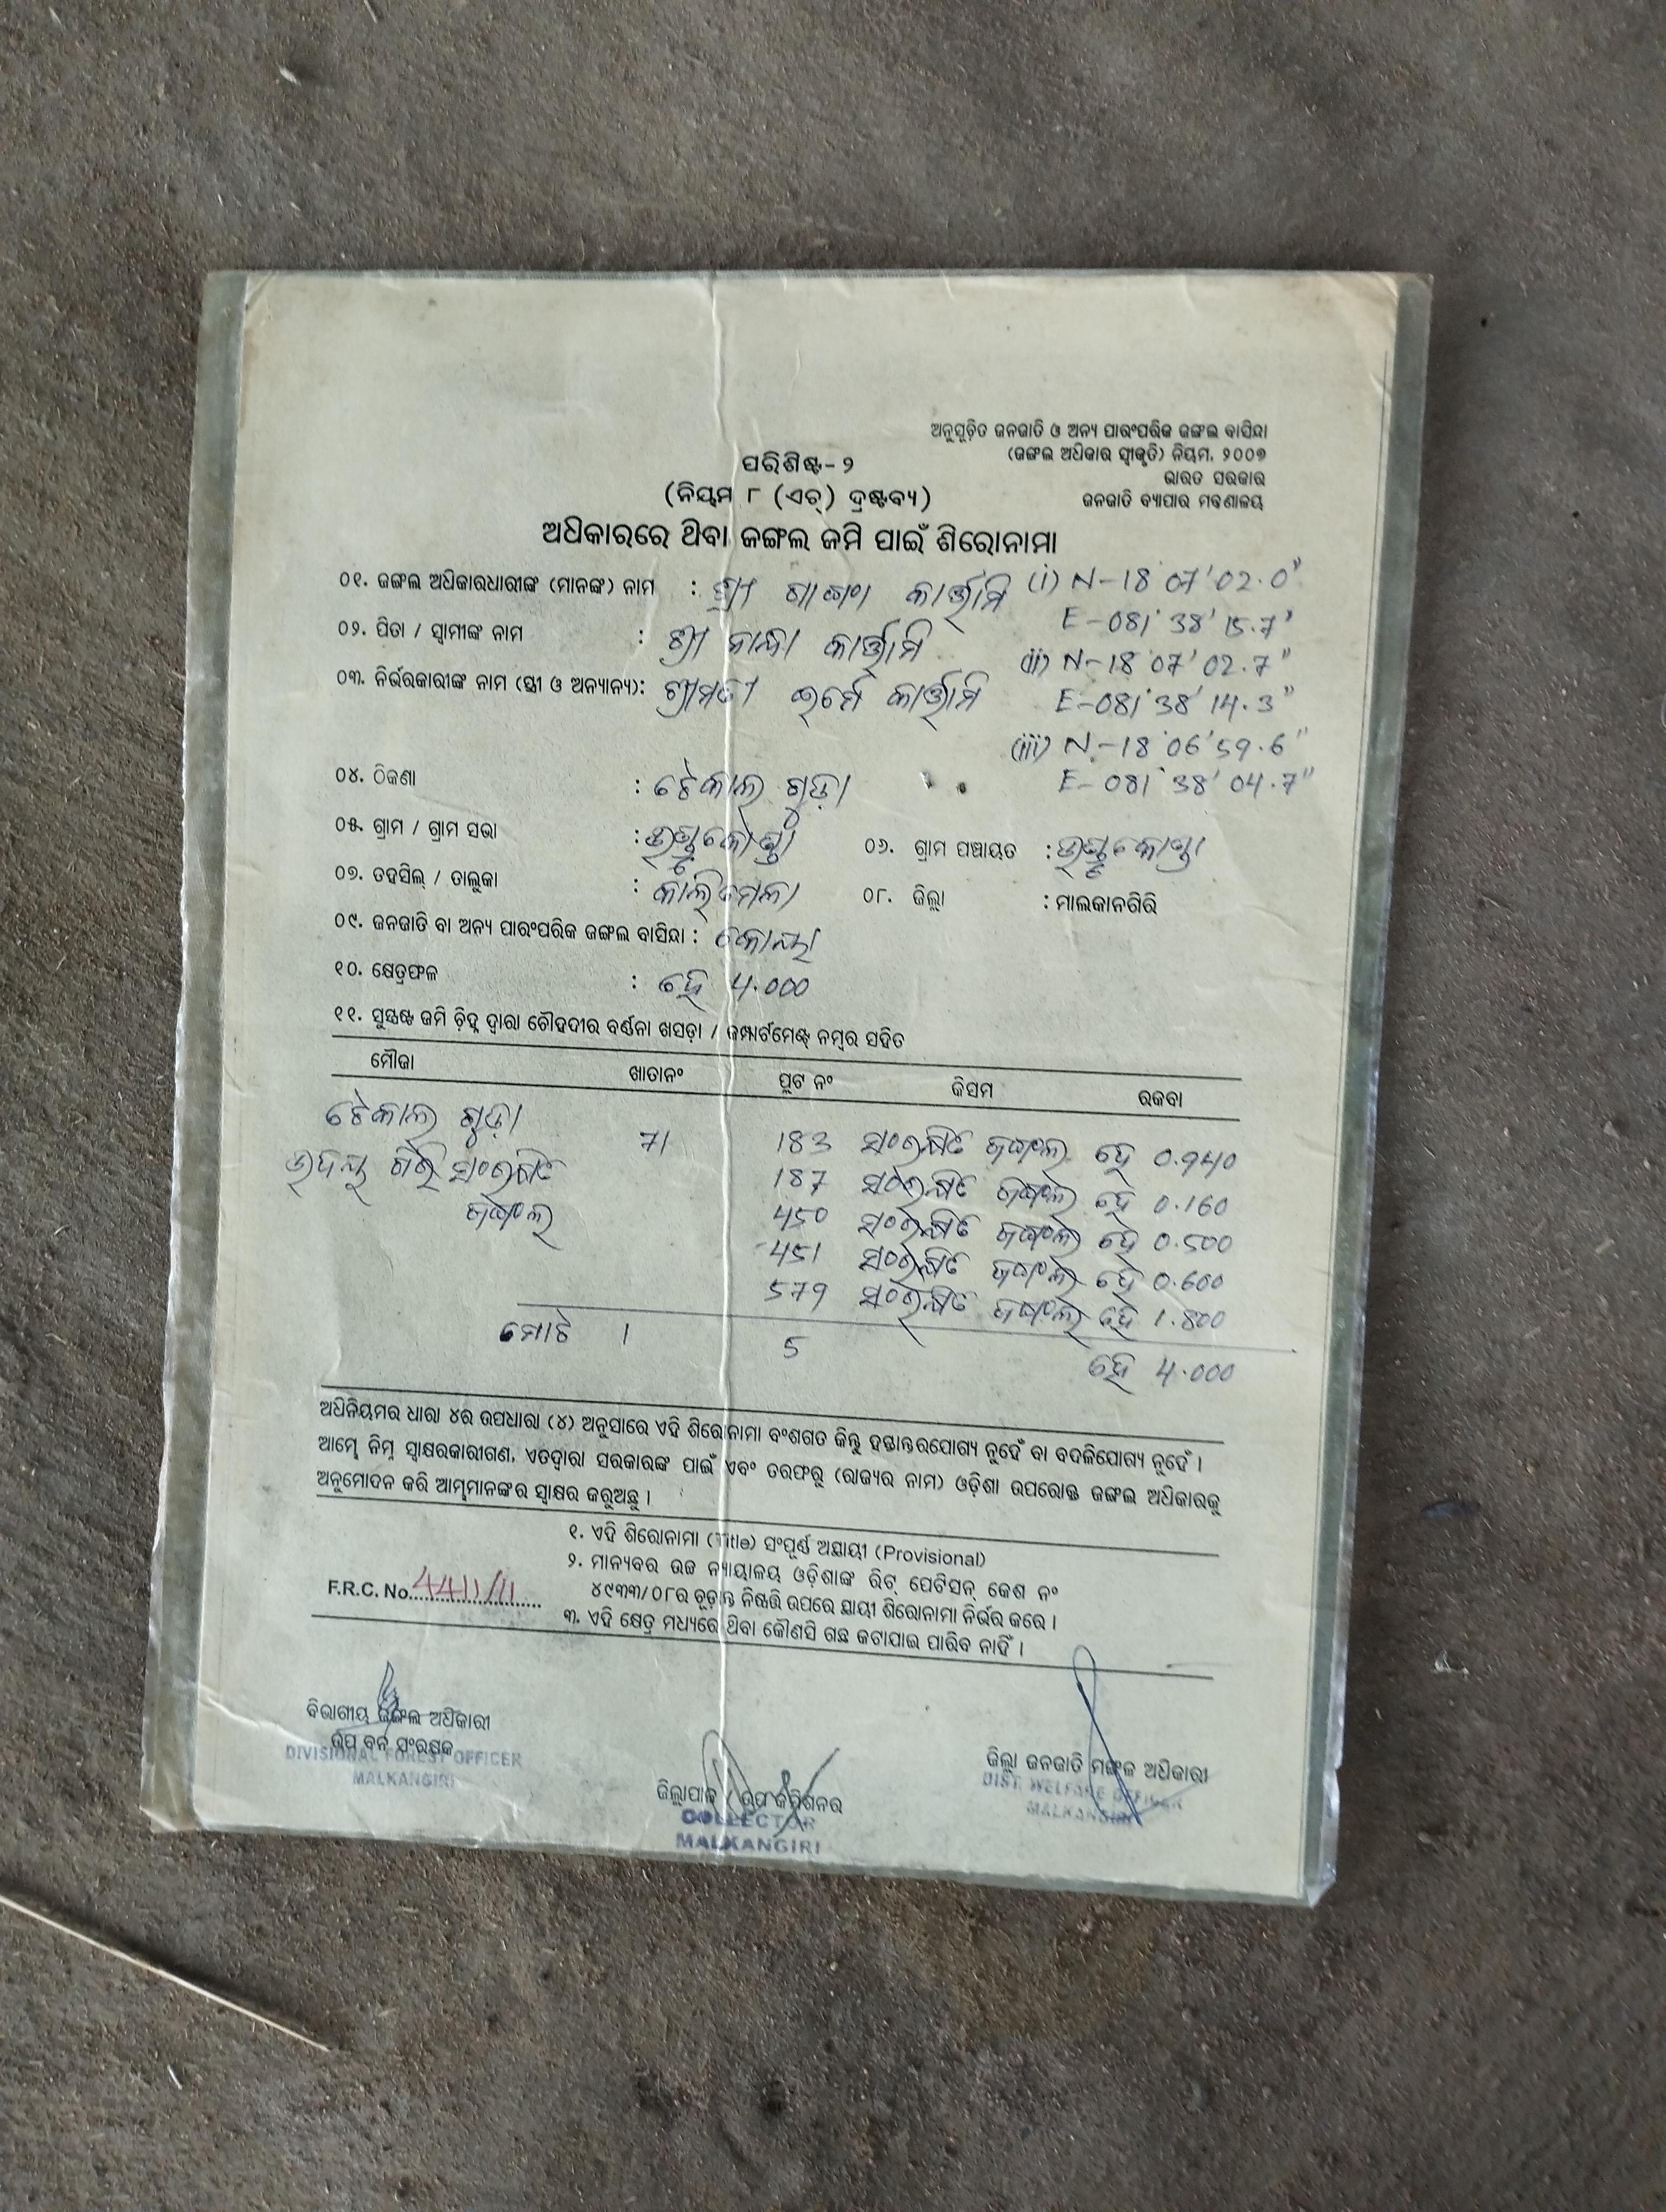 ଅନୁସୂଚିତ ଜନଜାତି ଓ ଅନ୍ୟ ପାରଂପରିକ ଜଙ୍ଗଲ ବାସିନ୍ଦା
(ଜଙ୍ଗଲ ଅଧିକାର ସ୍ୱୀକୃତି) ନିୟମ, ୨୦୦୭
ଭାରତ ସରକାର
ଜନଜାତି ବ୍ୟାପାର ମନ୍ତ୍ରଣାଳୟ
ପରିଶିଷ୍ଟ-୨
(ନିୟମ ୮ (ଏଚ୍) ଦ୍ରଷ୍ଟବ୍ୟ)
ଅଧିକାରରେ ଥିବା ଜଙ୍ଗଲ ଜମି ପାଇଁ ଶିରୋନାମା
୦୧. ଜଙ୍ଗଲ ଅଧିକାରଧାରୀଙ୍କ (ମାନଙ୍କ) ନାମ : ଶ୍ରୀ କାର୍ତ୍ତାମି (i) N-18°07'02.0"
E-081°38'15.7"
୦୨. ପିତା / ସ୍ୱାମୀଙ୍କ ନାମ : ଶ୍ରୀ କାର୍ତ୍ତାମି
(ii) N-18°07'02.7"
୦୩. ନିର୍ଭରକାରୀଙ୍କ ନାମ (ସ୍ତ୍ରୀ ଓ ଅନ୍ୟାନ୍ୟ): ଶ୍ରୀମତୀ କାର୍ତ୍ତାମି E-081°38'14.3"
(iii) N-18°06'59.6"
E-081°38'04.7"
୦୪. ଠିକଣା : ଟେକାଲ ଗୁଡ଼ା
୦୫. ଗ୍ରାମ / ଗ୍ରାମ ସଭା : ୦୬. ଗ୍ରାମ ପଞ୍ଚାୟତ :
୦୭. ତହସିଲ୍ / ତାଲୁକା : କାଲିମେଳା ୦୮. ଜିଲ୍ଲା : ମାଲକାନଗିରି
୦୯. ଜନଜାତି ବା ଅନ୍ୟ ପାରଂପରିକ ଜଙ୍ଗଲ ବାସିନ୍ଦା : କୋୟା
୧୦. କ୍ଷେତ୍ରଫଳ : ହେ 4.000
୧୧. ସୁସ୍ପଷ୍ଟ ଜମି ଚିହ୍ନ ଦ୍ୱାରା ଚୌହଦୀର ବର୍ଣ୍ଣନା ଖସଡ଼ା / କମ୍ପାର୍ଟମେଣ୍ଟ୍ ନମ୍ବର ସହିତ
ମୌଜା ଖାତାନଂ ପ୍ଲଟ ନଂ କିସମ ରକବା
ଟେକାଲ ଗୁଡ଼ା 71 183 ସଂରକ୍ଷିତ ଜଙ୍ଗଲ ହେ 0.940
ଗିରି ସଂରକ୍ଷିତ 187 ସଂରକ୍ଷିତ ଜଙ୍ଗଲ ହେ 0.160
ଜଙ୍ଗଲ 450 ସଂରକ୍ଷିତ ଜଙ୍ଗଲ ହେ 0.500
451 ସଂରକ୍ଷିତ ଜଙ୍ଗଲ ହେ 0.600
579 ସଂରକ୍ଷିତ ଜଙ୍ଗଲ ହେ 1.800
ମୋଟ 1 5 ହେ 4.000
ଅଧିନିୟମର ଧାରା ୪ର ଉପଧାରା (୪) ଅନୁସାରେ ଏହି ଶିରୋନାମା ବଂଶଗତ କିନ୍ତୁ ହସ୍ତାନ୍ତରଯୋଗ୍ୟ ନୁହେଁ ବା ବଦଳିଯୋଗ୍ୟ ନୁହେଁ ।
ଆମ୍ଭେ ନିମ୍ନ ସ୍ୱାକ୍ଷରକାରୀଗଣ, ଏତଦ୍ୱାରା ସରକାରଙ୍କ ପାଇଁ ଏବଂ ତରଫରୁ (ରାଜ୍ୟର ନାମ) ଓଡ଼ିଶା ଉପରୋକ୍ତ ଜଙ୍ଗଲ ଅଧିକାରକୁ
ଅନୁମୋଦନ କରି ଆମ୍ଭମାନଙ୍କର ସ୍ୱାକ୍ଷର କରୁଅଛୁ ।
୧. ଏହି ଶିରୋନାମା (Title) ସଂପୂର୍ଣ୍ଣ ଅସ୍ଥାୟୀ (Provisional)
୨. ମାନ୍ୟବର ଉଚ୍ଚ ନ୍ୟାୟାଳୟ ଓଡ଼ିଶାଙ୍କ ରିଟ୍ ପେଟିସନ୍ କେଶ ନଂ
୪୯୩୩/୦୮ର ଚୂଡ଼ାନ୍ତ ନିଷ୍ପତ୍ତି ଉପରେ ସ୍ଥାୟୀ ଶିରୋନାମା ନିର୍ଭର କରେ ।
F.R.C. No. 4411/11
୩. ଏହି କ୍ଷେତ୍ର ମଧ୍ୟରେ ଥିବା କୌଣସି ଗଛ କଟାଯାଇ ପାରିବ ନାହିଁ ।
ବିଭାଗୀୟ ଜଙ୍ଗଲ ଅଧିକାରୀ
ଉପ ବନ ସଂରକ୍ଷକ
DIVISIONAL FOREST OFFICER
MALKANGIRI
ଜିଲ୍ଲାପାଳ / ଉପ କମିଶନର
COLLECTOR
MALKANGIRI
ଜିଲ୍ଲା ଜନଜାତି ମଙ୍ଗଳ ଅଧିକାରୀ
DIST. WELFARE OFFICER
MALKANGIRI